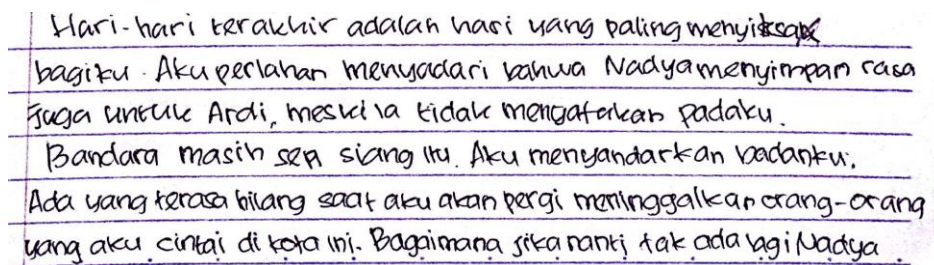 Hari-hari terakhir adalah hari yang paling menyiksa
bagiku. Aku perlahan menyadari bahwa Nadya menyimpan rasa
juga untuk Ardi, meski ia tidak mengatakan padaku.
Bandara masih sepi siang itu. Aku menyandarkan badanku.
Ada yang terasa hilang saat aku akan pergi meninggalkan orang-orang
yang aku cintai di kota ini. Bagaimana jika nanti tak ada lagi Nadya.